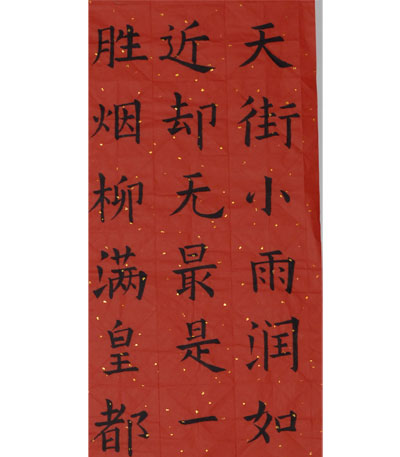 天街小雨润如
近却无最是一
胜烟柳满皇都